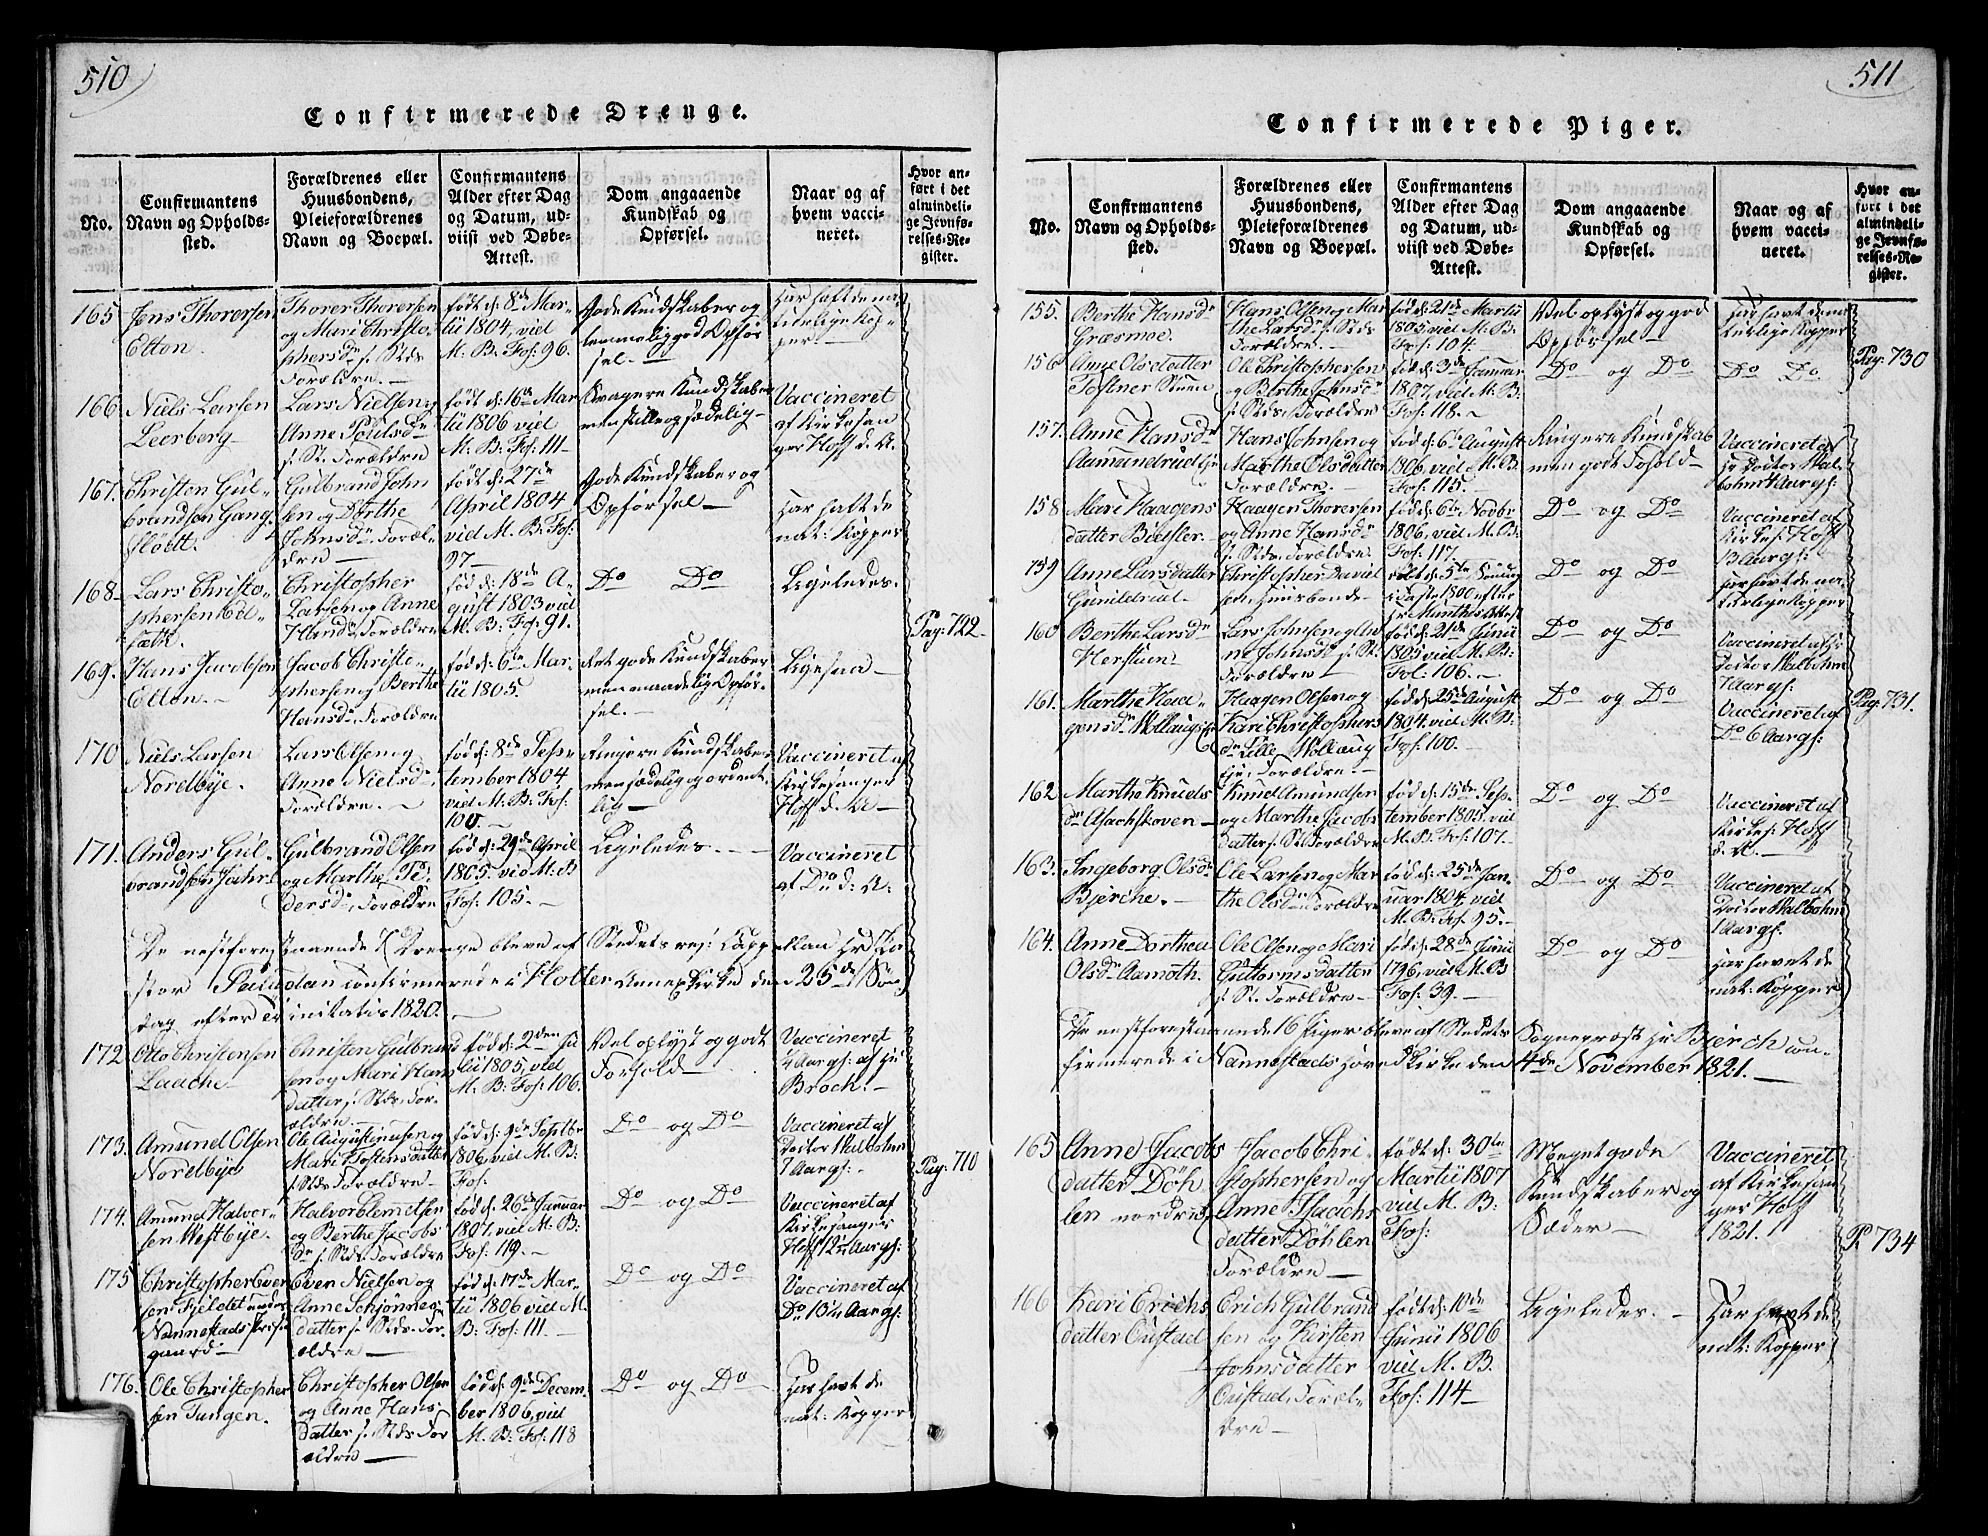 510
Confirmerede Drenge.
No.
Confirmantens
Navn og Opholds-
sted.
Forældrenes eller
Huusbondens,
Pleieforældrenes
Navn og Boepæl.
Confirmantens
Alder efter Dag
og Datum, ud-
viist ved Døbe-
Attest.
Dom angaaende
Kundskab og
Opførsel.
Naar og af
hvem vacci-
neret.
Hvor an-
ført i det
almindeli-
ge Jevnfø-
relses-Re-
gister.
165
Jens Thorersen
Etton.
Thorer Thorersen
og Mari Christo-
phersdr s. Stds
Forældre.
født d: 8de Mar-
tii 1804, vid
M. B. Fol: 96.
Gode Kundskaber og
temmelig god Opfør
sel.
Har haft de na-
turlige Kop-
per.
166
Niels Larsen
Leerberg
Lars Nielsen og
Anne Poulsdr
s. St. Forældre
født d: 16de Mar
tii 1806 vid
M. B: Fol: 111
Svagere Kundskaber
men stille og sædelig
Vaccineret
af Kirkesan
ger Hoff d. A.
167.
Christen Gul-
brandsen Gang-
flödt.
Gulbrand John
sen og Dorthe
Johnsdr Foræl-
dre
født d: 27de
April 1804
vid M. B. Fol:
97
Gode Kundskaber og
Opførsel
Har haft de
nat: Kopper
168
Lars Christo-
phersen
Christopher
Larsen og Anne
Hansdr Forældre
fød d: 18de A-
gust 1803 vid
M. B: Fol: 91.
Do Do
Ligeledes.
Pag: 722
169.
Hans Jacobsen
Etton.
Jacob Christo-
phersen og Berthe
Hansdr Forældre
fød d: 6te Mar-
tii 1805.
Ret gode Kundskaber
men maadelig Opfør-
sel.
Ligesaa
170
Niels Larsen
Nordbÿe.
Lars Olsen og
Anne Nielsdr
Forældre.
fød d: 8de Sep-
tember 1804
vid M. B: Fol:
100.
Ringere Kundskaber
men sædelig og ordent
lig
Vaccineret af
Kirkesanger
Hoff d. A
171.
Anders Gul-
brandsen
Gulbrand Olsen
og Marthe Pe-
dersdr, Forældre
fød d: 29de April
1805. vid M. B
Fol: 105.
Ligeledes.
Vaccineret
af Do d: A:
De nestforestaaende Drenge bleve af Stedets res: Cappellan Hr Pa
stor Paludan confirmerede i Holter Annex Kirke den 25de Søn-
dag efter Trinitatis 1820.
172
Otto Christensen
Laache
Christen Gulbrand
sen og Mari Hans
datter s. Stds. For-
ældre
fød d: 2den Ju
lii 1805, vid
M. B: Fol: 106.
Vel oplyst og godt
Forhold
Vaccineret
Aargs: af Hr
Broch.
173.
Amund Olsen
Nordbÿe
Ole Augustinusen og
Mari Tostensdatter
s. Stds Forældre
fød d: 9de Septbr
1806, vid M. B:
Fol:
Do og Do
Vaccineret af
Doctor Walbohm
7 Aargs:
Pag: 710
174.
Amund Halvor-
sen Westbÿe.
Halvor Clemetsen
og Berthe Jacobs
dr s. Stds Forældre
fød d: 26de Januar
1807, vid M. B:
Fol: 119.
Do og Do
Vaccineret af
Kirkesanger
Hoff 12 Aargs:
175
Christopher Even
sen Fjeldet under
Nannestads Præste
gaard
Even Nielsen og
Anne Schjönne-
datter s. Stds. For-
ældre
fød d: 17de Mar-
tii 1806 vid M.
B: Fol: 111.
Do og Do
Vaccineret af
Do 13 Aargs:
176.
Ole Christopher
sen Tangen.
Christopher Olsen
og Anne Hans-
datter s. Stds For
ældre
fød d: 9de Decem-
ber 1806, vid
M. B: Fol: 118
Do og Do
Har havt de
nat: Kopper
511
Confirmerede Piger.
No.
Confirmantens
Navn og Opholds-
sted.
Forældrenes eller
Huusbondens,
Pleieforældrenes
Navn og Boepæl.
Confirmantens
Alder efter Dag
og Datum, ud-
viist ved Døbe-
Attest.
Dom angaaende
Kundskab og
Opførsel.
Naar og af
hvem vacci-
neret.
Hvor an-
ført i det
almindeli-
ge Jevnfø-
relses-Re-
gister.
155.
Berthe Hansdr
Græsmoe.
Hans Olsen og Mar
the Larsdr s. Stds
Forældre.
fød d: 21de Martii
1805, vid M. B.
Fol: 104.
Vel oplyst og god
Opførsel
Har havt de na
turlige Kopper
156
Anne Olsdatter
Tostner
Ole Christophersen
og Berthe Johnsdr
s. Stds. Forældre
fød d: 3de Januar
1807, vid M. B:
Fol: 118.
Do og Do
Do Do
Pag: 730
157.
Anne Hansdr
Aamundrud
Hans Johnsen og
Marthe Olsdatter
Forældre.
fød d: 6te August
1806, vid M. B.
Fol: 115.
Ringere Kundskab
men godt Forhold
Vaccineret af
Hr Doctor Wal-
bohm Aargs:
158
Mari Haagens
datter
Haagen Thorersen
og Anne Hansdr
s. Stds. Forældre.
fød d: 6te Novbr
1806, vid M. B:
Fol: 117.
Do og Do
Vaccineret af
Kirkes: Hoff
13 Aargs:
159
Anne Larsdatter
Christopher Daniel
sen, Huusbonde
født d: 5te Søndag
i Faste 1800 efter
Hr Munthes Attest
Do og Do
Har havt de na-
turlige Kopper
160
Berthe Larsdr
Herstuen
Lars Johnsen og An
ne Johnsdr s. St:
Forældre
fød d: 21de Junii
1805 vid M. B:
Fol: 106.
Do og Do
Vaccineret af Hr
Doctor Walbohm
7 Aargs:
161.
Marthe Haa-
gensdr
Haagen Olsen og
Kari Christophers
dr Lille
Eje, Forældre.
fød d: 25de August
1804, vid M. B:
Fol: 100.
Do og Do
Vaccineret af
Do 6 Aargs:
Pag: 731.
162
Marthe Knuds
dr
Knud Amundsen
og Marthe Jacobs
datter s. St. Forældre
fød d: 15de Sep-
tember 1805. vid
M. B. Fol: 107.
Do og Do
Vaccineret af
Kirkes: Hoff
d. A.
163.
Ingeborg Olsdr
Bjerche.
Ole Larsen og Mar
the Olsdr Forældre
fød d: 25de Jan-
uar 1804, vid
M. B: Fol. 95.
Do og Do
Vaccineret af
Doctor Walbohm
1 Aargs.
164.
Anne Dorthea
Olsdr Aamoth.
Ole Olsen og Mari
Guttormsdatter
s. St. Forældre
fød d: 28de Junii
1796, vid M. B
Fol: 39.
Do og Do
Har havet de
nat: Kopper
De nestforestaaende 16 Piger bleve af Stedets Sogneprest Hr Bjerch con-
firmerede i Nannestads Hoved Kirke den 4de November 1821.
165
Anne Jacobs
datter Döh
len nordre
Jacob Chri-
stophersen og
Anne Isachs
datter Döhlen
Forældre
født d: 30te
Martii 1807
vid M. B:
Fol:
Meget gode
Kundskaber og
Sæder
Vaccineret
af Kirkesan
ger Hoff
1821.
P. 734
166
Kari Erichs
datter Onstad
Erich Gulbrand
sen og Kirsten
Johnsdatter
Onstad, Foræl-
dre
født d: 10de
Junii 1806
vid M. B.
Fol: 114
Ligeledes.
Har havt de
nat: Kopper